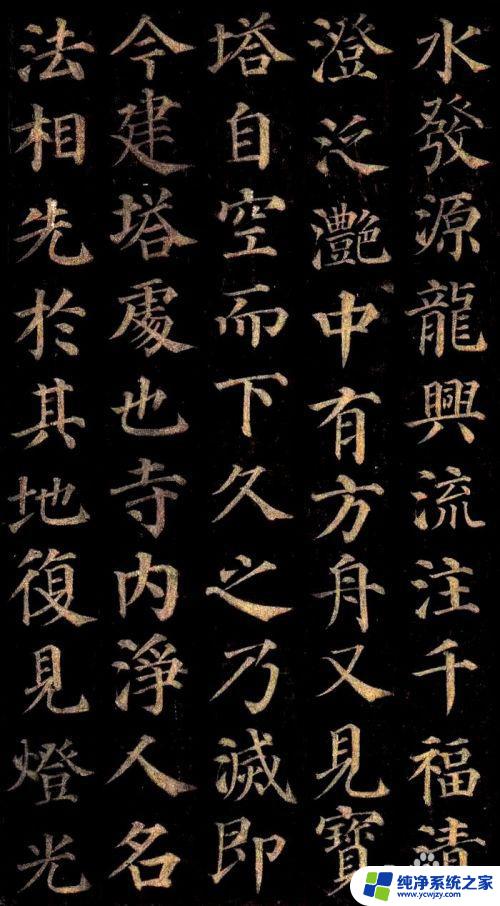 水發源龍興流注千福清
澄泛灧中有方舟又見寶
塔自空而下久之乃滅即
今建塔處也寺内淨人名
法相先於其地復見燈光
纯净系统之家
www.ycwjzy.com